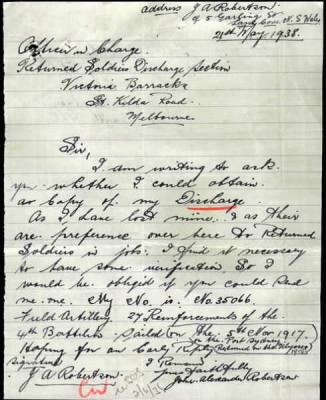 address J A Robertson.
5 Garling St
Lane Cove N. S Wales
21st May 1938.
Officer in Charge.
Returned Soldiers Discharge section
Victoria Barracks
St. Kilda Road.
Melbourne.
Sir,
I am writing to ask
you whether I could obtain.
a Copy of my Discharge
As I have lost mine. & as their
are preference over here to Returned
Soldiers in jobs. I find it necessary
to have some verification So I
would be obliged if you could send
me. one. My No. is: No. 35066.
Field Artillery 27 Reinforcements of the
4th Battalion Sailed on the. 5th Nov 1917.
in the Port Sydney
Hoping for an Early Reply Returned on the
Signature I Remain
yours faithfully
J A Robertson. John Alexander Robertson